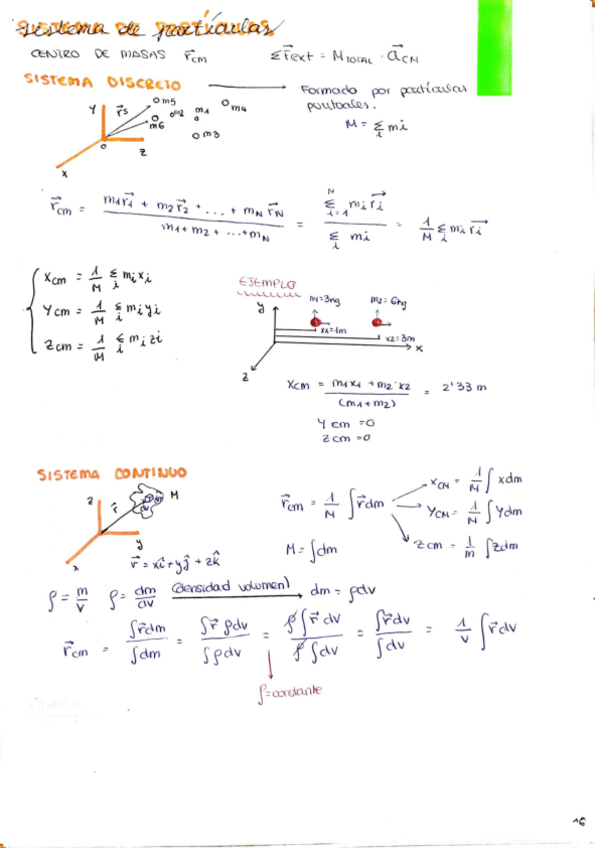 sistema de partículas
CENTRO DE MASAS r⃗cm Σ F⃗ext = MTOTAL · a⃗CM
SISTEMA DISCRETO → Formado por partículas puntoales.
M = Σi mi
Y r⃗5 m5 m2 m1 m4
m6 m3
O Z
X
r⃗cm = (m1r⃗1 + m2r⃗2 + ... + mN r⃗N) / (m1 + m2 + ... + mN) = (Σ i=1 N mi r⃗i) / (Σi mi) = 1/M Σi mi r⃗i
Xcm = 1/M Σi mi xi
Ycm = 1/M Σi mi yi
Zcm = 1/M Σi mi zi
EJEMPLO
m1=3kg m2=6kg
y
x1=1m
x2=3m
x
z
Xcm = (m1x1 + m2·x2) / (m1+m2) = 2'33 m
Ycm =0
Zcm =0
SISTEMA CONTINUO
z r⃗ dm dv M
y
x
r⃗ = xî + yĵ + zk̂
r⃗cm = 1/M ∫ r⃗dm
xCM = 1/M ∫ xdm
YCM = 1/M ∫ Ydm
Zcm = 1/m ∫ Zdm
M = ∫dm
ρ = m/v ρ = dm/dv (densidad volumen) → dm = ρdv
r⃗cm = ∫r⃗dm / ∫dm = ∫r⃗ ρdv / ∫ρdv = ρ∫r⃗ dv / ρ∫dv = ∫r⃗dv / ∫dv = 1/v ∫r⃗dv
ρ=constante
16